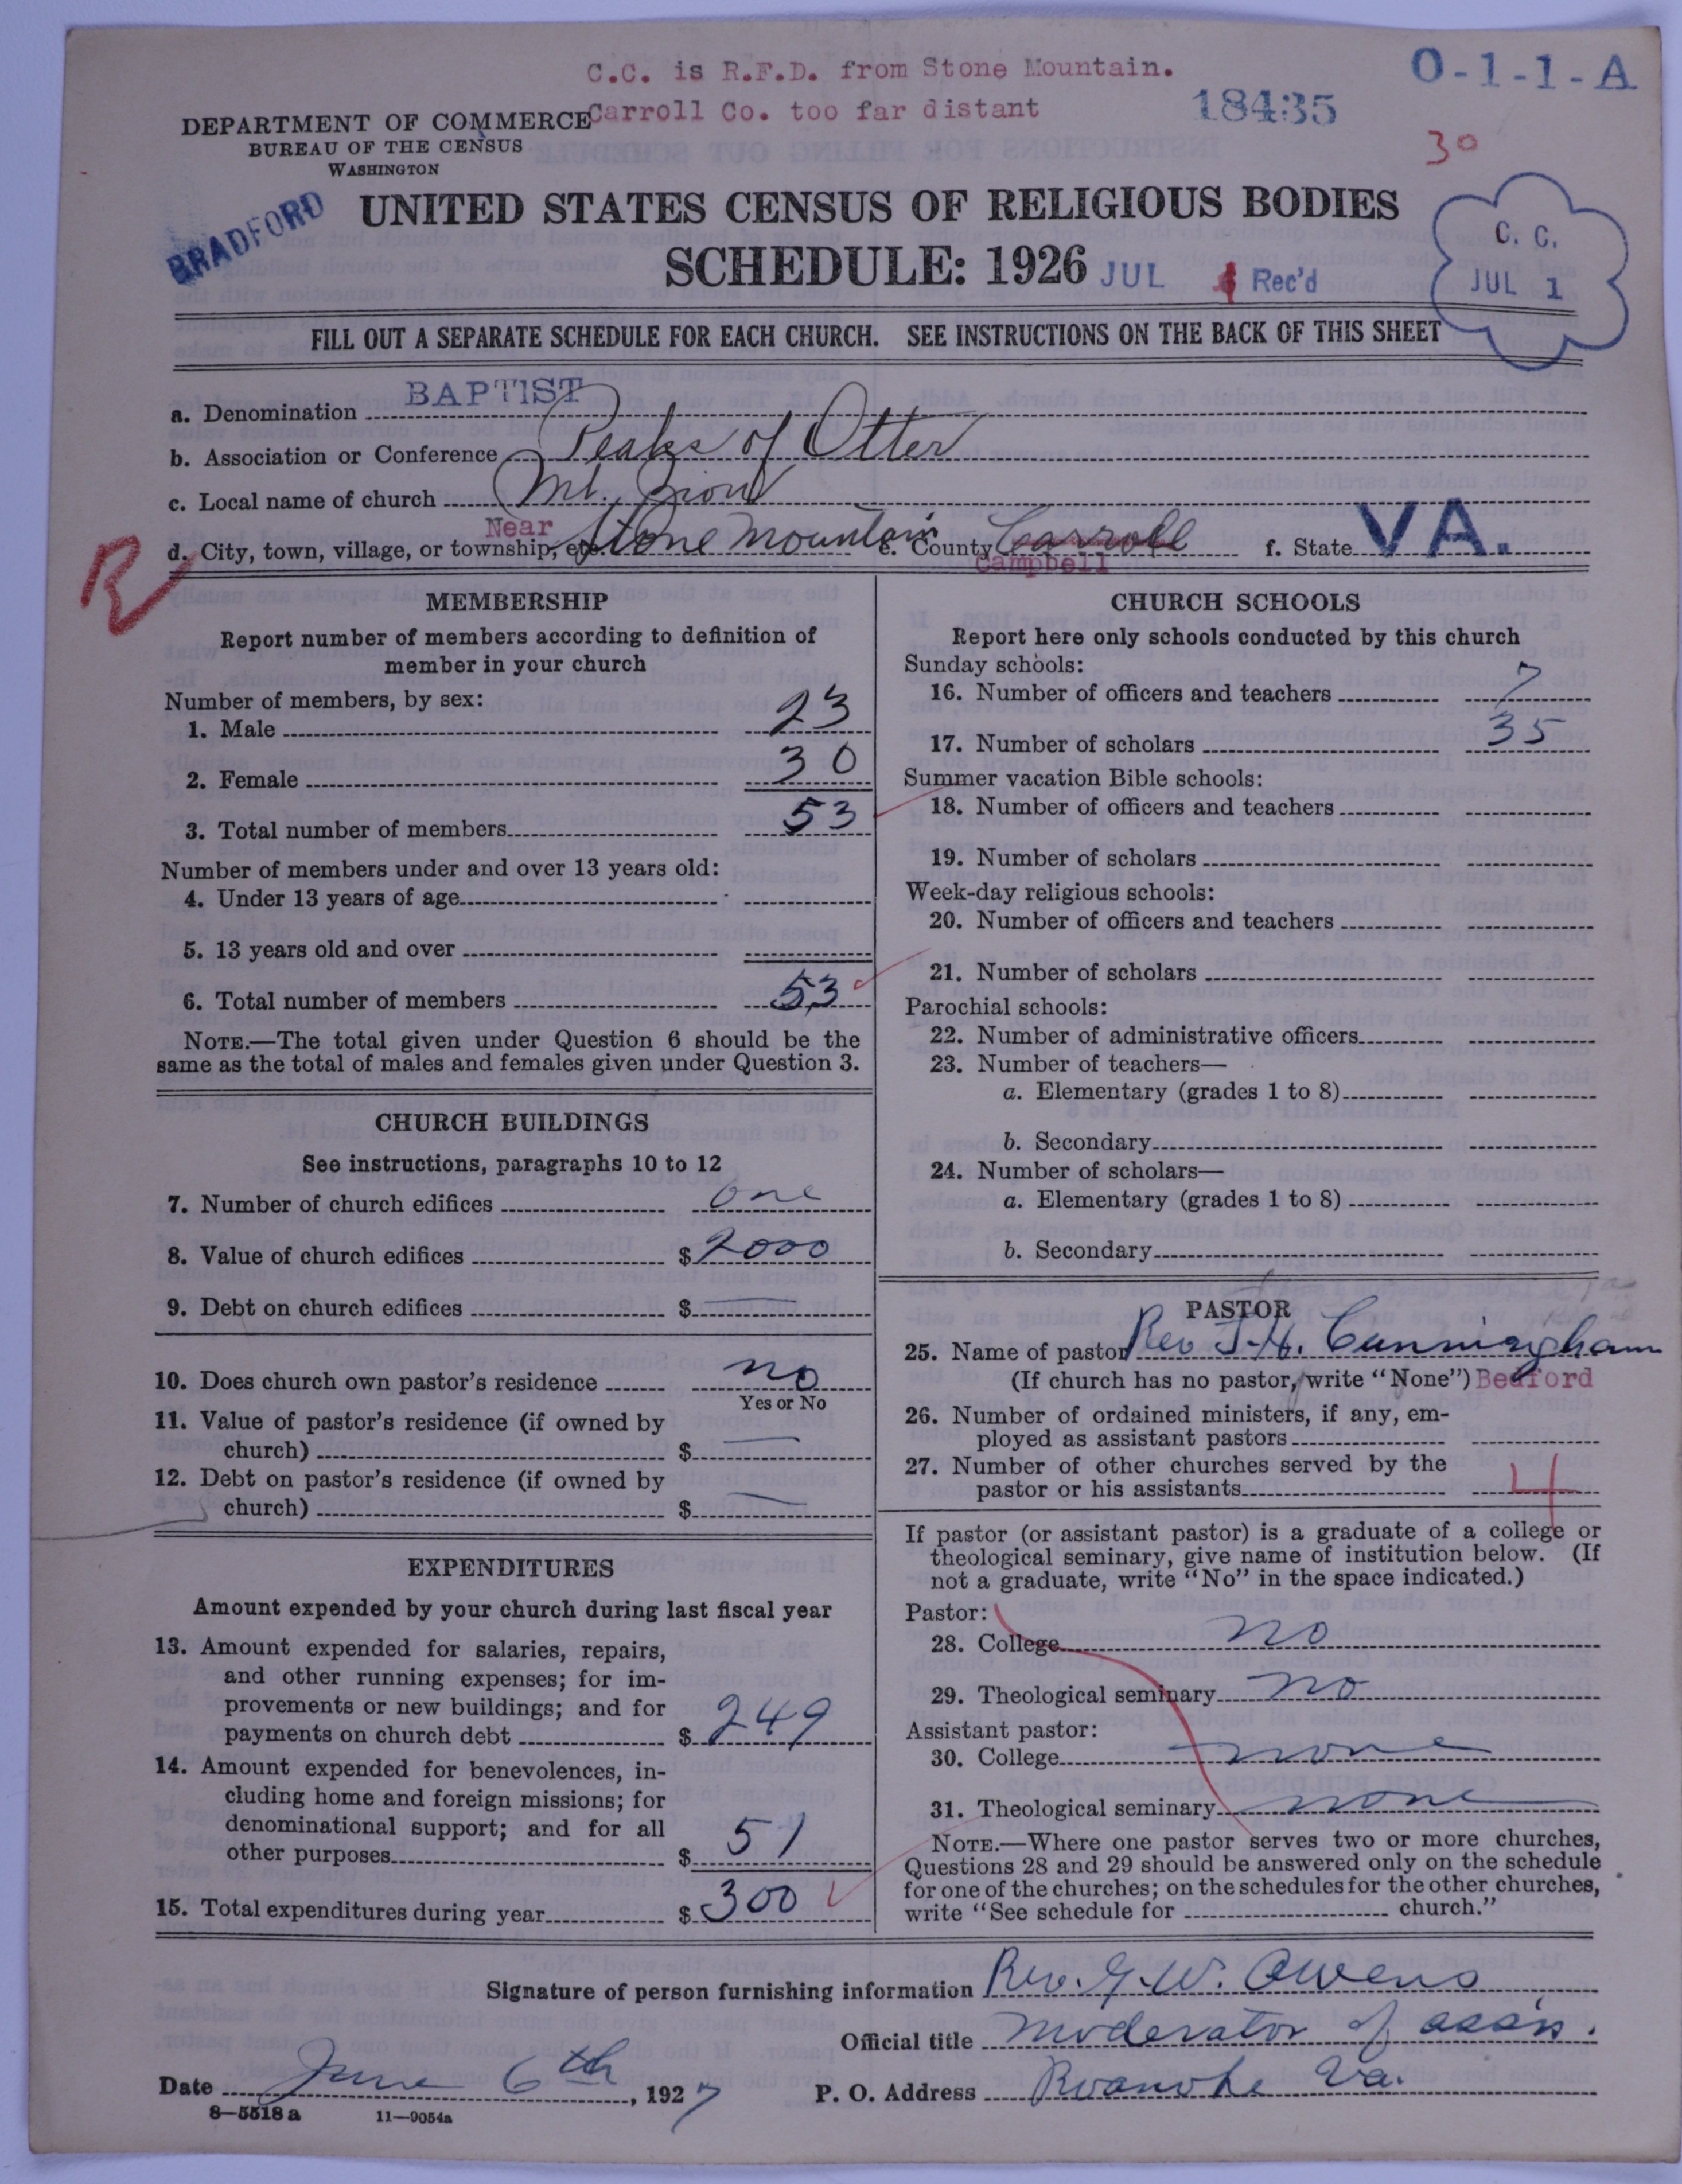 C.C. is R.F.D. from Stone Mountain.
Carroll Co. too far distant
18435
O-1-1-A
30
DEPARTMENT OF COMMERCE
BUREAU OF THE CENSUS
WASHINGTON
BRADFORD
UNITED STATES CENSUS OF RELIGIOUS BODIES
SCHEDULE: 1926
JUL Rec'd
C. C.
JUL 1
FILL OUT A SEPARATE SCHEDULE FOR EACH CHURCH. SEE INSTRUCTIONS ON THE BACK OF THIS SHEET
a. Denomination BAPTIST
b. Association or Conference Peaks of Otter
c. Local name of church Mt. Zion
d. City, town, village, or township, etc. Near Stone Mountain e. County Carroll Campbell f. State VA.
R
MEMBERSHIP
Report number of members according to definition of
member in your church
Number of members, by sex:
1. Male 23
2. Female 30
3. Total number of members 53
Number of members under and over 13 years old:
4. Under 13 years of age
5. 13 years old and over
6. Total number of members 53
NOTE.—The total given under Question 6 should be the
same as the total of males and females given under Question 3.
CHURCH BUILDINGS
See instructions, paragraphs 10 to 12
7. Number of church edifices one
8. Value of church edifices $ 2000
9. Debt on church edifices $ —
10. Does church own pastor's residence no
Yes or No
11. Value of pastor's residence (if owned by
church) $ —
12. Debt on pastor's residence (if owned by
church) $ —
EXPENDITURES
Amount expended by your church during last fiscal year
13. Amount expended for salaries, repairs,
and other running expenses; for im-
provements or new buildings; and for
payments on church debt $ 249
14. Amount expended for benevolences, in-
cluding home and foreign missions; for
denominational support; and for all
other purposes $ 51
15. Total expenditures during year $ 300
CHURCH SCHOOLS
Report here only schools conducted by this church
Sunday schools:
16. Number of officers and teachers 7
17. Number of scholars 35
Summer vacation Bible schools:
18. Number of officers and teachers
19. Number of scholars
Week-day religious schools:
20. Number of officers and teachers
21. Number of scholars
Parochial schools:
22. Number of administrative officers
23. Number of teachers—
a. Elementary (grades 1 to 8)
b. Secondary
24. Number of scholars—
a. Elementary (grades 1 to 8)
b. Secondary
PASTOR
25. Name of pastor Rev J. H. Cunningham
(If church has no pastor, write "None") Bedford
26. Number of ordained ministers, if any, em-
ployed as assistant pastors
27. Number of other churches served by the
pastor or his assistants 4
If pastor (or assistant pastor) is a graduate of a college or
theological seminary, give name of institution below. (If
not a graduate, write "No" in the space indicated.)
Pastor:
28. College no
29. Theological seminary no
Assistant pastor:
30. College none
31. Theological seminary none
NOTE.—Where one pastor serves two or more churches,
Questions 28 and 29 should be answered only on the schedule
for one of the churches; on the schedules for the other churches,
write "See schedule for church."
Signature of person furnishing information Rev. G. W. Owens
Official title moderator of ass'n.
Date June 6th, 1927 P. O. Address Roanoke Va.
8—5518 a 11—9054a